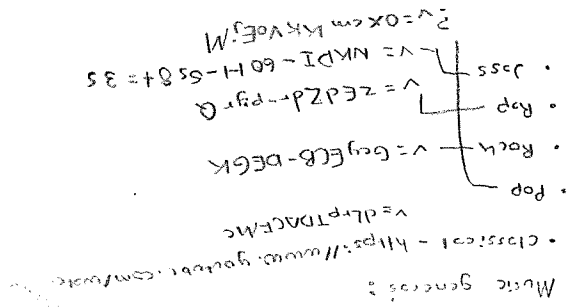 Music generos :
• Classical - https://www.youtube.com/watc
v=dLrpTDACFMc
• Pop
• Rock v= GcyECB-DEGK
• Rap v = zEdZdr-pyrQ
• Jass v = NKDI-60H-6s8t=35
?v=0xcmKKVoEjM